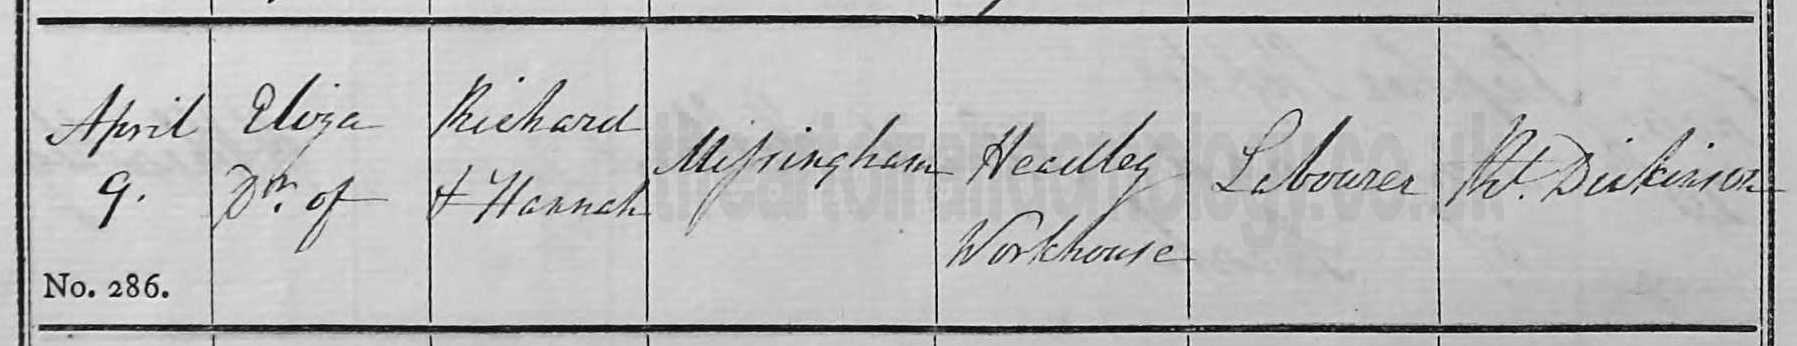 April
9.
No. 286.
Eliza
Dr. of
Richard
& Hannah
Missingham
Headley
Workhouse
Labourer
Rt. Dickinson